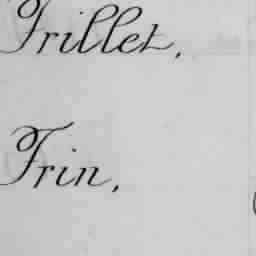 Trillet,
Trin,